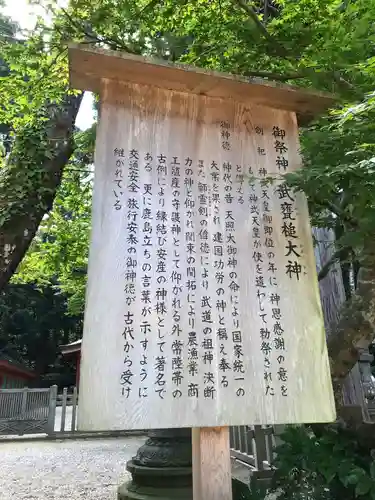 御祭神　武甕槌大神
創祀　神武天皇御即位の年に　神恩感謝の意を
もって神武天皇が使を遣わして勅祭された
と伝える
御神徳　神代の昔　天照大御神の命により国家統一の
大業を果たし　建国功労の神と称え奉る
また　韴霊剣の偉徳により　武道の祖神　決断
力の神と仰がれ関東の開拓により農漁業　商
工殖産の守護神として仰がれる外　常陸帯の
古例により縁結び安産の神様として著名で
ある　更に鹿島立ちの言葉が示すように
交通安全　旅行安泰の御神徳が古代から受け
継がれている